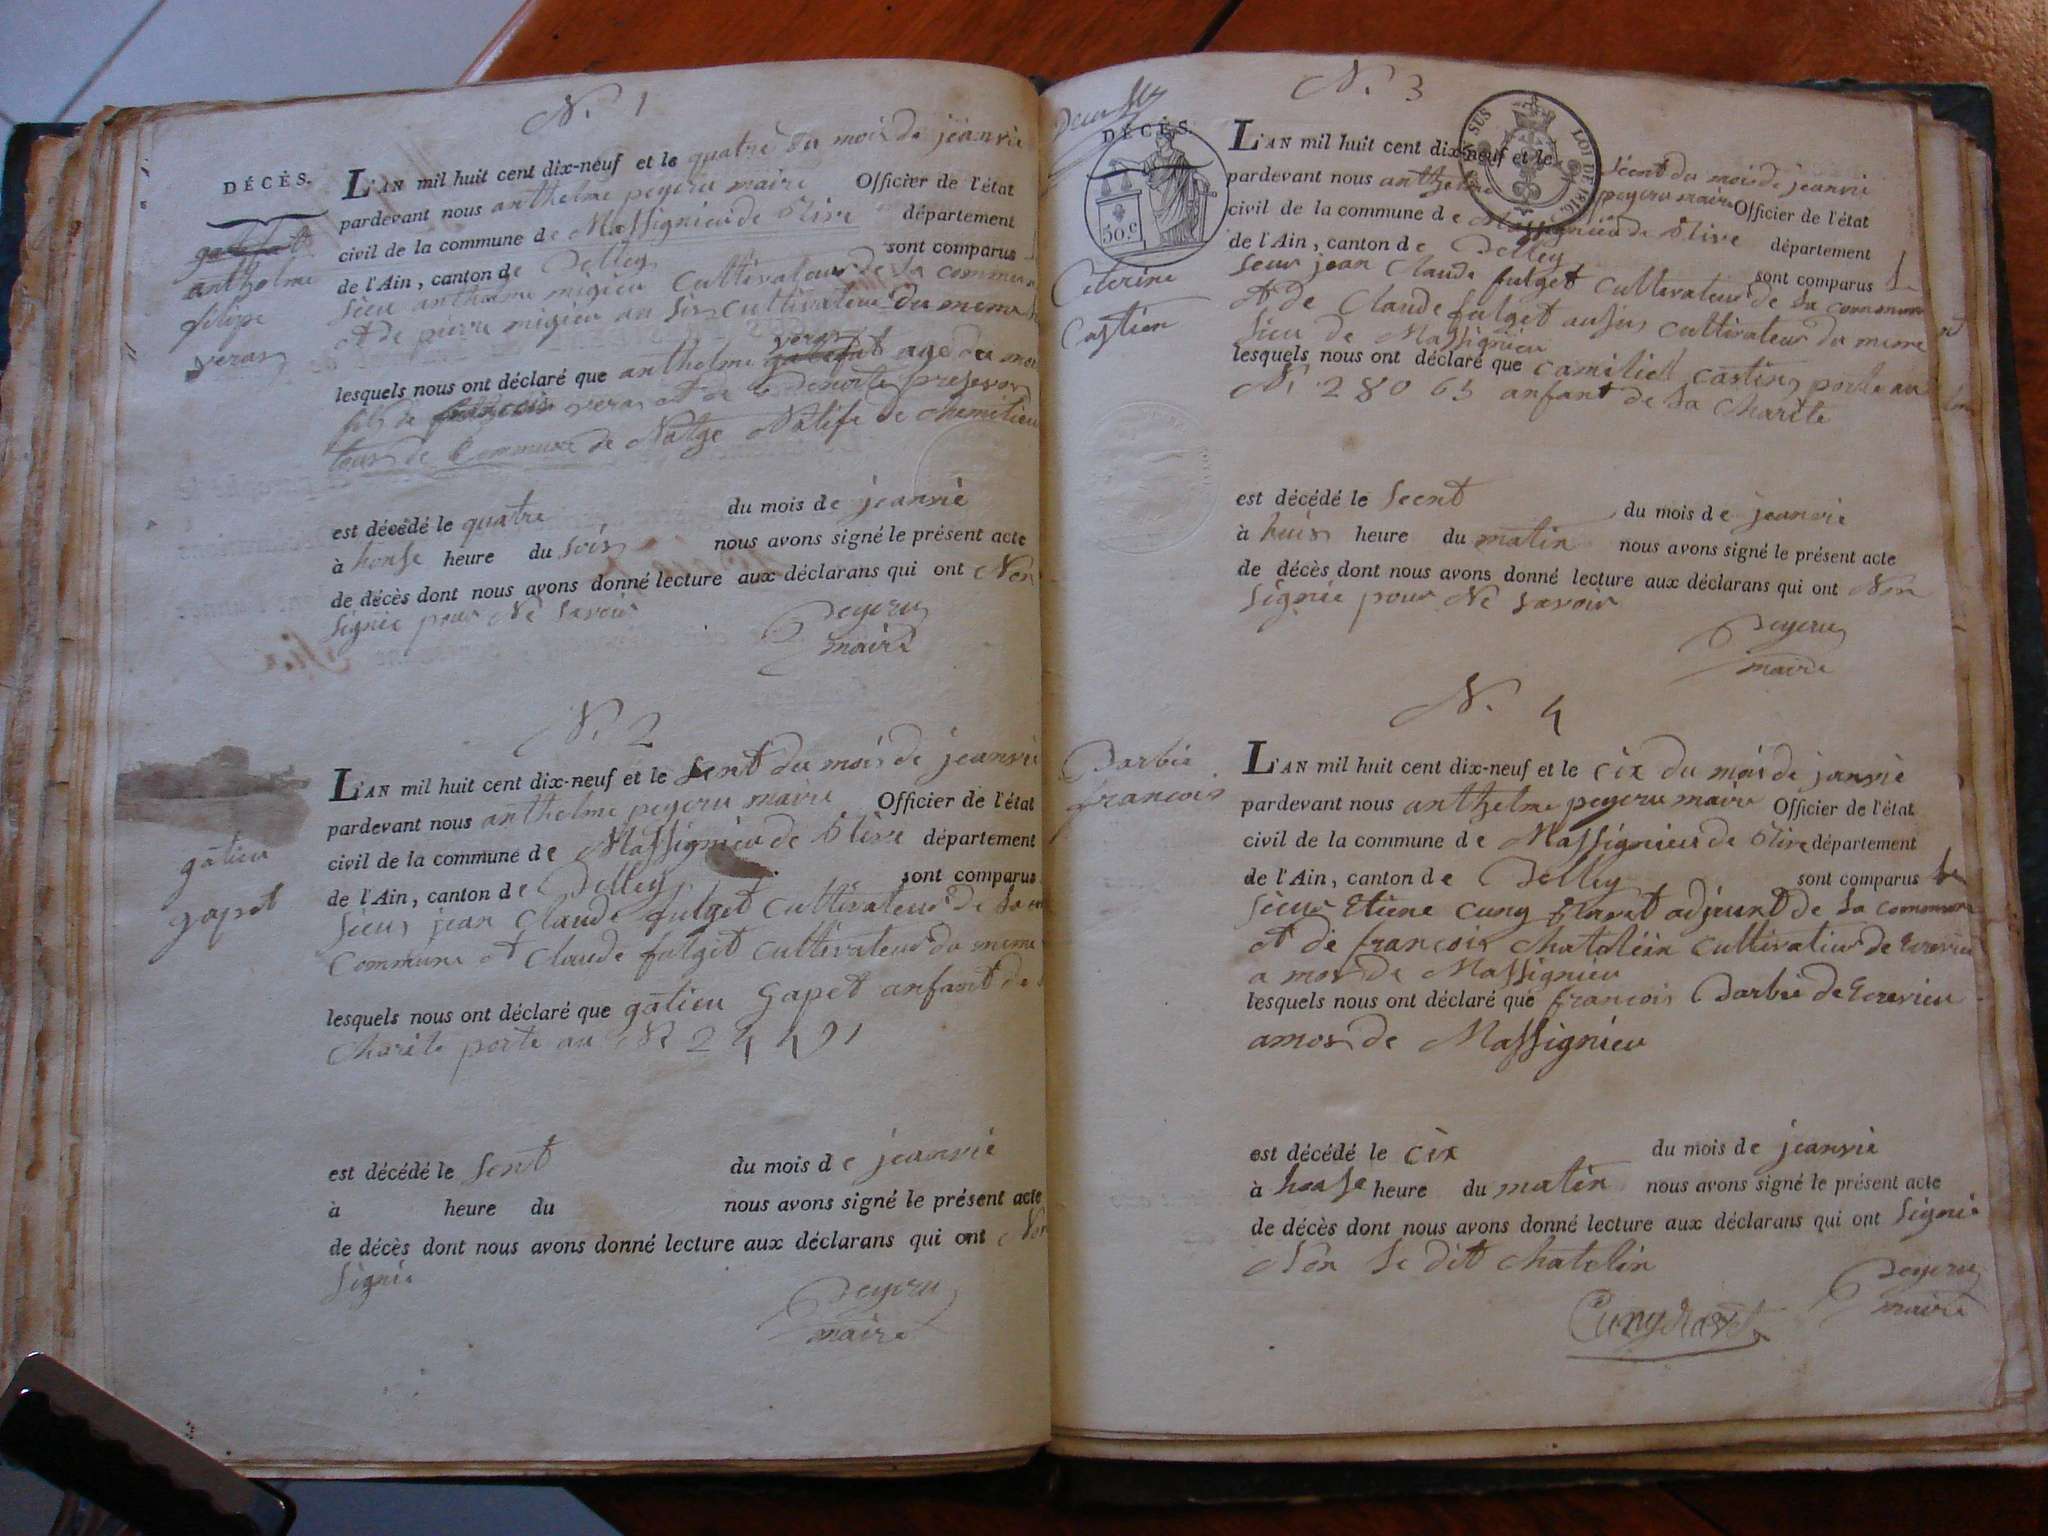 N. 1
DÉCÈS.
L'AN mil huit cent dix-neuf et le quatre du mois de jeanvie
pardevant nous anthelme peyeru maire Officier de l'état
civil de la commune de Massignieu de Rive département
de l'Ain, canton de Belley sont comparus
sieur anthelme migieu cultivateur de la commune
et de pierre migieu au sis cultivateur du meme
anthelme
filipe
veras
lesquels nous ont déclaré que anthelme veras age de
fils de veras et de
de Commune de Natge Natife de
est décédé le quatre du mois de jeanvie
à honse heure du soir nous avons signé le présent acte
de décès dont nous avons donné lecture aux déclarans qui ont Non
signie pour Ne savoir
peyeru
maire
N. 2
gatieu
gapet
L'AN mil huit cent dix-neuf et le sent du mois de jeanvie
pardevant nous anthelme peyeru maire Officier de l'état
civil de la commune de Massignieu de Rive département
de l'Ain, canton de Belley sont comparus
sieur jean Claude fulget cultivateur de la
Commune et Claude fulget cultivateur du meme
lesquels nous ont déclaré que gatieu gapet anfant de
charite porte au N 24491
est décédé le sent du mois de jeanvie
à heure du nous avons signé le présent acte
de décès dont nous avons donné lecture aux déclarans qui ont Non
signie
peyeru
maire
N. 3
DÉCÈS.
50.c
SUS
LOI DE 1816.
Castien
L'AN mil huit cent dix-neuf et le seent du mois de jeanvie
pardevant nous anthelme peyeru maire Officier de l'état
civil de la commune de Massignieu de Rive département
de l'Ain, canton de Belley sont comparus
sieur jean Claude fulget cultivateur de la commune
et de Claude fulget au sus cultivateur du meme
lieu de Massignieu
lesquels nous ont déclaré que castin porte au
N. 28065 anfant de la charite
est décédé le seent du mois de jeanvie
à huis heure du matin nous avons signé le présent acte
de décès dont nous avons donné lecture aux déclarans qui ont Non
signie pour Ne savoir
peyeru
maire
N. 4
Barbie
francois
L'AN mil huit cent dix-neuf et le cix du mois de janvie
pardevant nous anthelme peyeru maire Officier de l'état
civil de la commune de Massignieu de Rive département
de l'Ain, canton de Belley sont comparus le
sieur Etiene cung adjount de la commune
et de francois chatelin cultivatieur de Ecrevieu
amos de Massignieu
lesquels nous ont déclaré que francois Barbie de Ecrevieu
amos de Massignieu
est décédé le cix du mois de jeanvie
à honse heure du matin nous avons signé le présent acte
de décès dont nous avons donné lecture aux déclarans qui ont signie
Non le dit chatelin
peyeru
maire